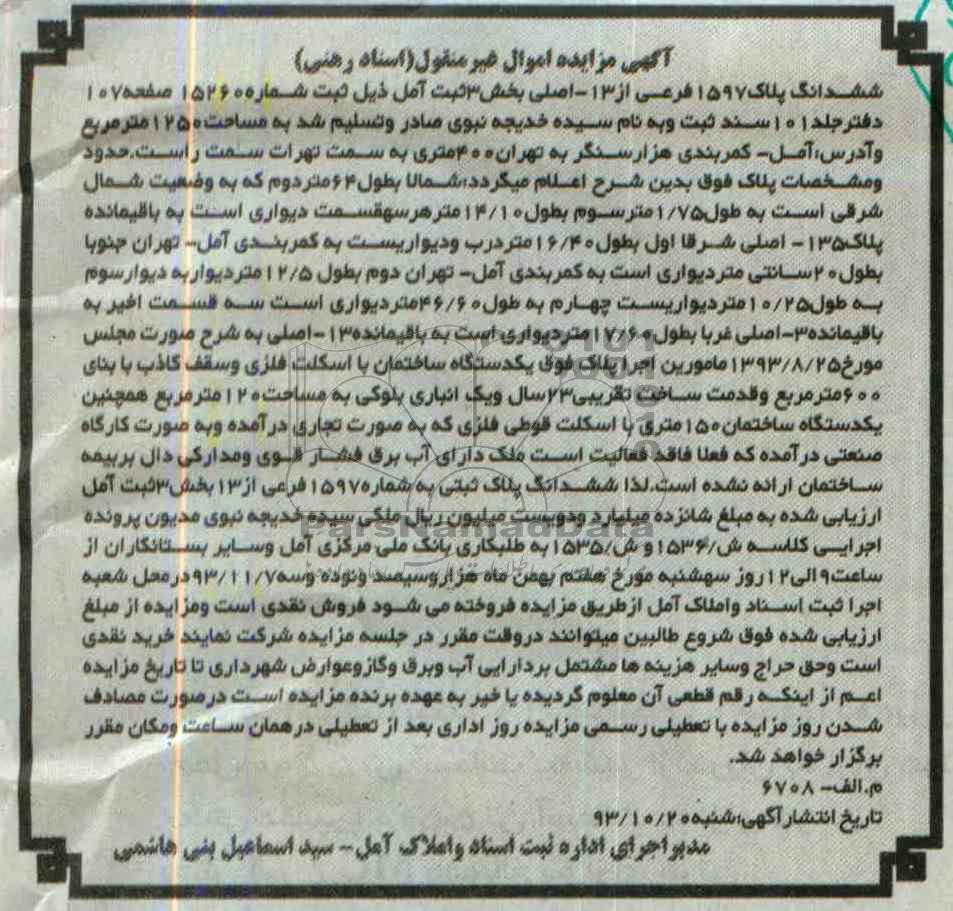 آگهی مزایده اموال غیر منقول(اسناد رهنی)
ششدانگ پلاک۱۵۹۷فرعی از۱۳-اصلی بخش۳ثبت آمل ذیل ثبت شماره۱۵۲۶۰ صفحه۱۰۷
دفترجلد۱۰۱سند ثبت وبه نام سیده خدیجه نبوی صادر وتسلیم شد به مساحت۱۲۵۰مترمربع
وآدرس:آمل- کمربندی هزارسنگر به تهران۴۰۰متری به سمت تهرات سمت راست.حدود
ومشخصات پلاک فوق بدین شرح اعلام میگردد:شمالا بطول۶۴متردوم که به وضعیت شمال
شرقی است به طول۱/۷۵مترسوم بطول۱۴/۱۰مترهرسهقسمت دیواری است به باقیمانده
پلاک۱۳۵- اصلی شرقا اول بطول۱۶/۴۰متردرب ودیواریست به کمربندی آمل- تهران جنوبا
بطول۲۰سانتی متردیواری است به کمربندی آمل- تهران دوم بطول ۱۲/۵متردیواربه دیوارسوم
به طول۱۰/۲۵متردیواریست چهارم به طول۴۶/۶۰متردیواری است سه قسمت اخیر به
باقیمانده۳-اصلی غربا بطول۱۷/۶۰متردیواری است به باقیمانده۱۳-اصلی به شرح صورت مجلس
مورخ۱۳۹۳/۸/۲۵مامورین اجرا پلاک فوق یکدستگاه ساختمان با اسکلت فلزی وسقف کاذب با بنای
۶۰۰مترمربع وقدمت ساخت تقریبی۲۳سال ویک انباری بلوکی به مساحت۱۲۰مترمربع همچنین
یکدستگاه ساختمان۱۵۰متری با اسکلت قوطی فلزی که به صورت تجاری درآمده وبه صورت کارگاه
صنعتی درآمده که فعلا فاقد فعالیت است ملک دارای آب برق فشار قوی ومدارکی دال بربیمه
ساختمان ارائه نشده است.لذا ششدانگ پلاک ثبتی به شماره۱۵۹۷فرعی از۱۳بخش۳ثبت آمل
ارزیابی شده به مبلغ شانزده میلیارد ودویست میلیون ریال ملکی سیده خدیجه نبوی مدیون پرونده
ParsNamadData
اجرایی کلاسه ش/۱۵۳۶و ش/۱۵۳۵به طلبکاری بانک ملی مرکزی آمل وسایر بستانکاران از
ساعت۹الی۱۲روز سهشنبه مورخ هفتم بهمن ماه هزاروسیصد ونوده وسه۹۳/۱۱/۷درمحل شعبه
اجرا ثبت اسناد واملاک آمل ازطریق مزایده فروخته می شود فروش نقدی است ومزایده از مبلغ
ارزیابی شده فوق شروع طالبین میتوانند دروقت مقرر در جلسه مزایده شرکت نمایند خرید نقدی
است وحق حراج وسایر هزینه ها مشتمل بردارایی آب وبرق وگازوعوارض شهرداری تا تاریخ مزایده
اعم از اینکه رقم قطعی آن معلوم گردیده یا خیر به عهده برنده مزایده است درصورت مصادف
شدن روز مزایده با تعطیلی رسمی مزایده روز اداری بعد از تعطیلی درهمان ساعت ومکان مقرر
برگزار خواهد شد.
م.الف- ۶۷۰۸
تاریخ انتشار آگهی:شنبه۹۳/۱۰/۲۰
مدیر اجرای اداره ثبت اسناد واملاک آمل- سید اسماعیل بنی هاشمی